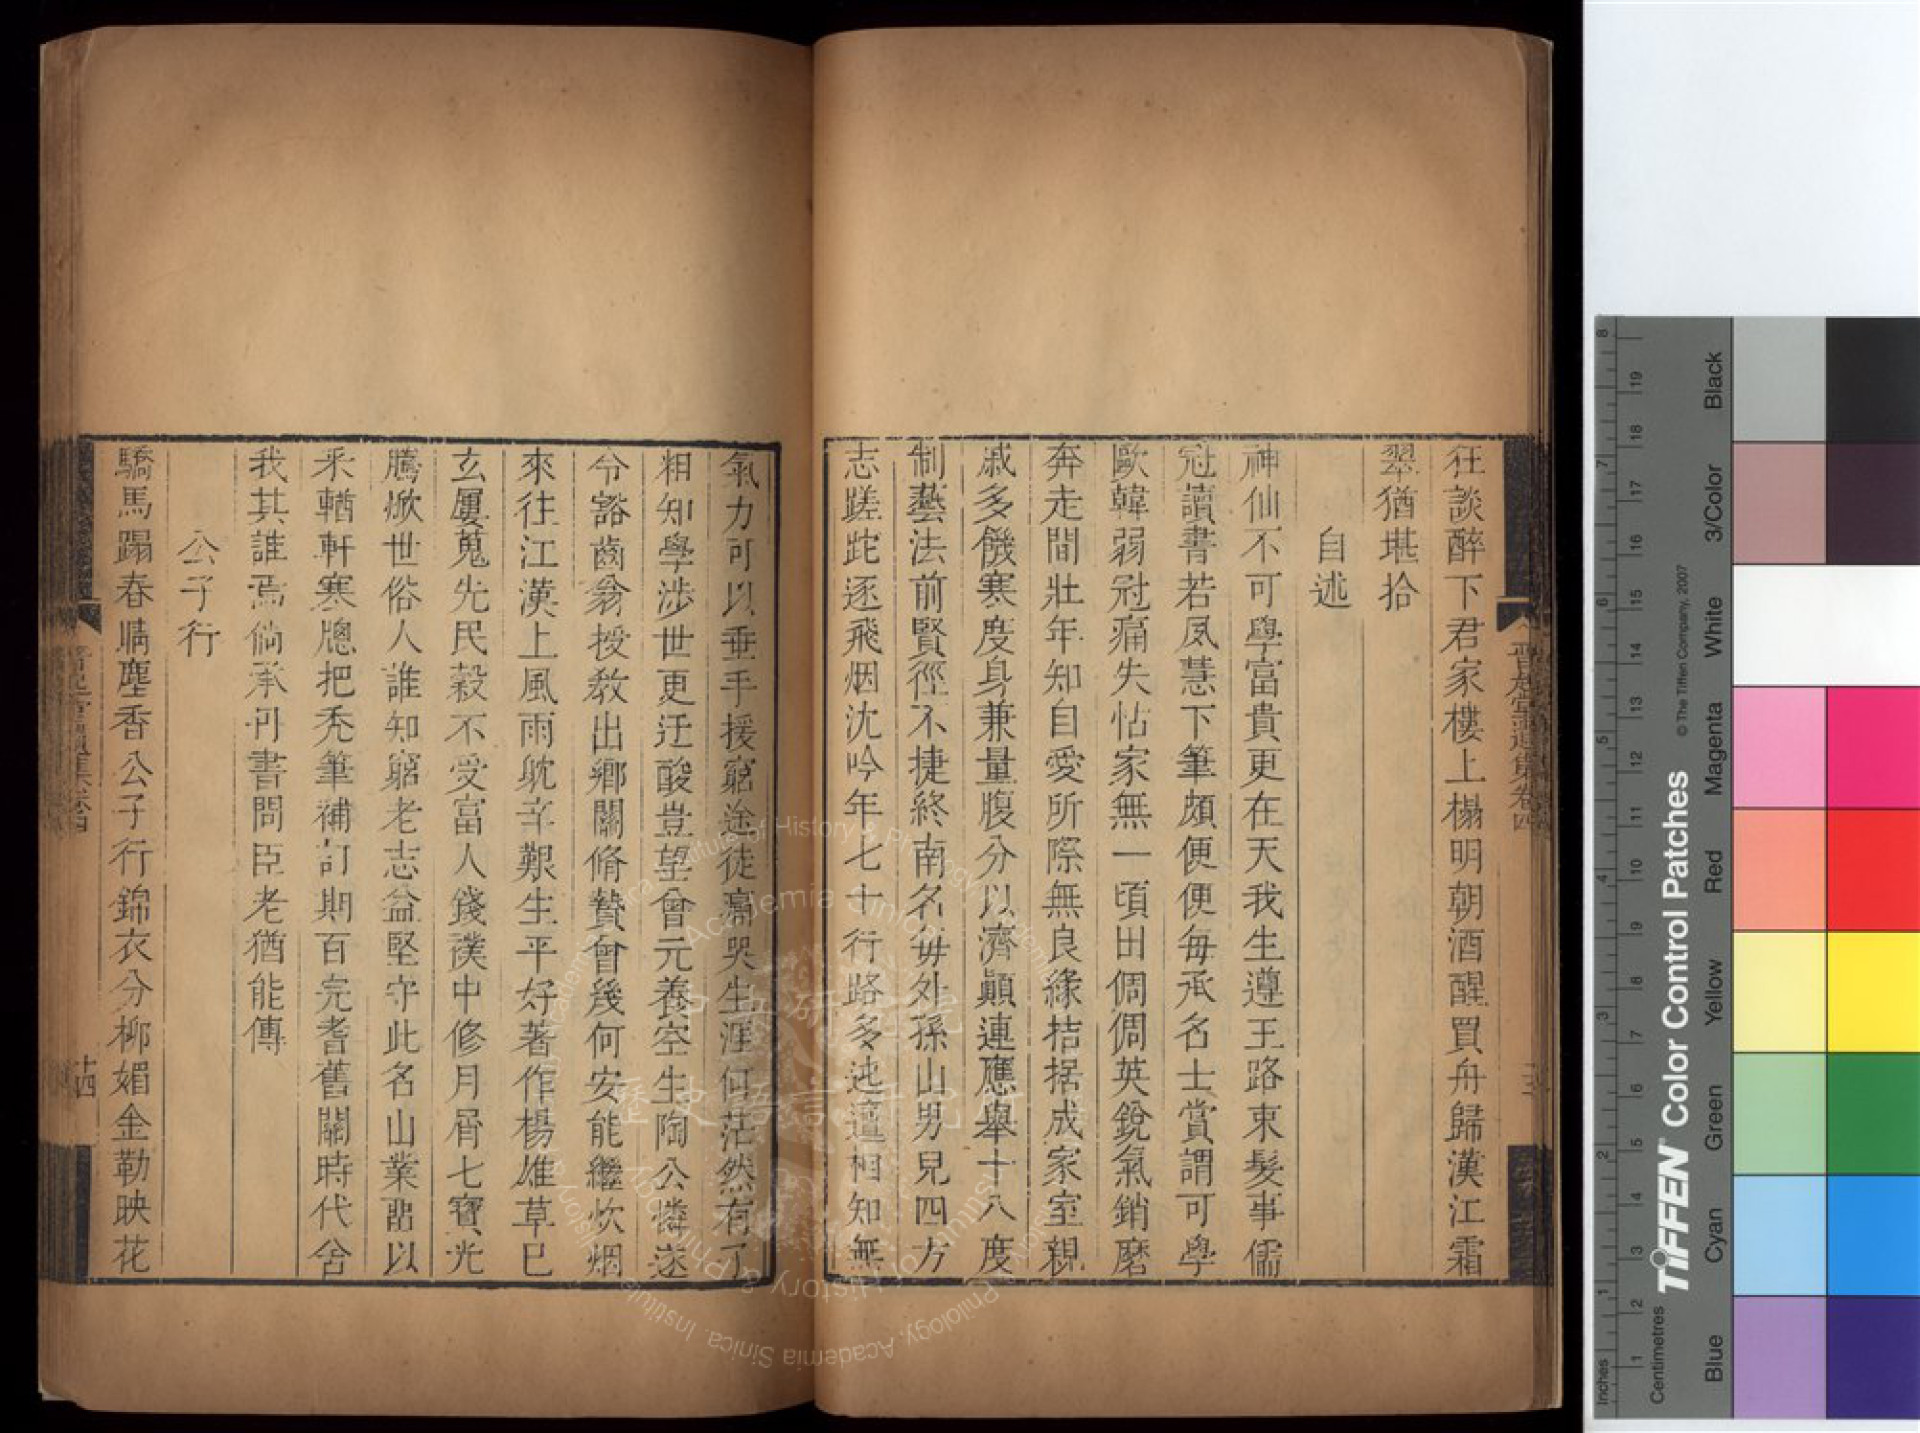 狂談醉下君家樓上榻明朝酒醒買舟歸漢江霜
翠猶堪拾
自述
神仙不可學富貴更在天我生遵王路束髮事儒
冠讀書若夙慧下筆頗便便每承名士賞謂可學
歐韓弱冠痛失怙家無一頃田倜倜英銳氣銷磨
奔走間壯年知自愛所際無良緣拮据成家室親
戚多饑寒度身兼量腹分以濟顛連應舉十八度
制藝法前賢徑不捷終南名每外孫山男兒四方
志蹉跎逐飛烟沈吟年七十行路多迍邅相知無
氣力可以垂手援窮途徒痛哭生涯何茫然有了
粗知學涉世更迂酸豈望會元養空生陶公憐遂
令豁齒翁授教出鄉關脩贄曾幾何安能繼炊烟
來往江漢上風雨耽辛艱生平好著作楊雄草已
玄屢蒐先民穀不受富人錢襆中修月屑七寶光
騰掀世俗人誰知窮老志益堅守此名山業嘂以
釆輶軒寒牕把秃筆補訂期百完耆舊關時代舍
我其誰焉倘承刋書問臣老猶能傳
公子行
驕馬蹋春晴塵香公子行錦衣分柳媚金勒映花
晉起堂遺集卷四
十四
Academia Sinica
歷史語言研究所
Institute of History & Philology, Academia Sinica
TIFFEN Color Control Patches
© The Tiffen Company, 2007
Inches
Centimetres
Blue
Cyan
Green
Yellow
Red
Magenta
White
3/Color
Black